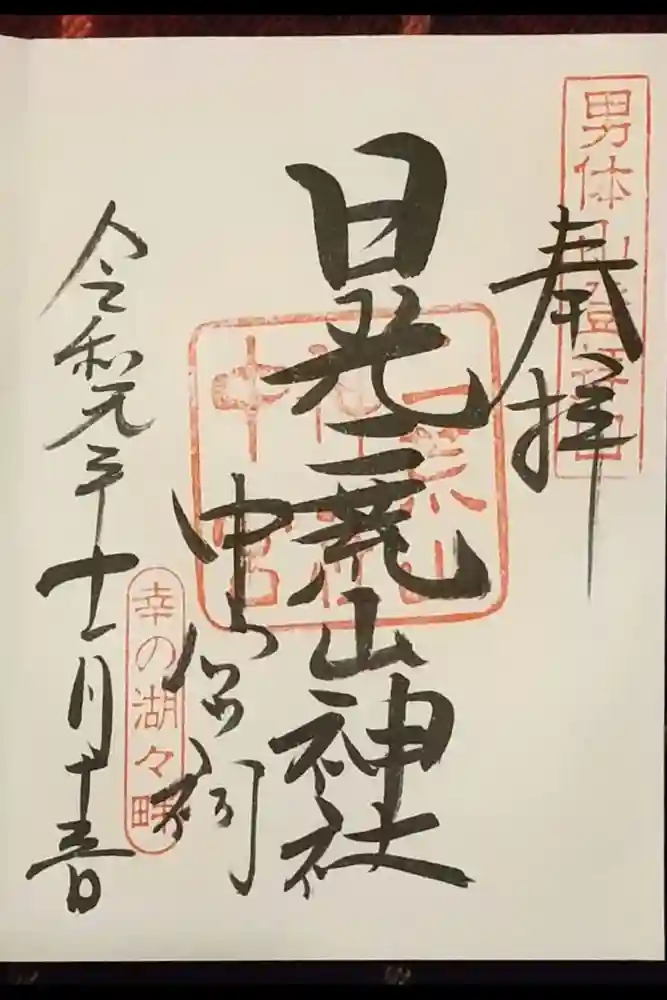 男体山登拝口
奉拝
日光二荒山神社
二荒山
神社
中宮
中宮祠
幸の湖々畔
令和元年十一月十五日